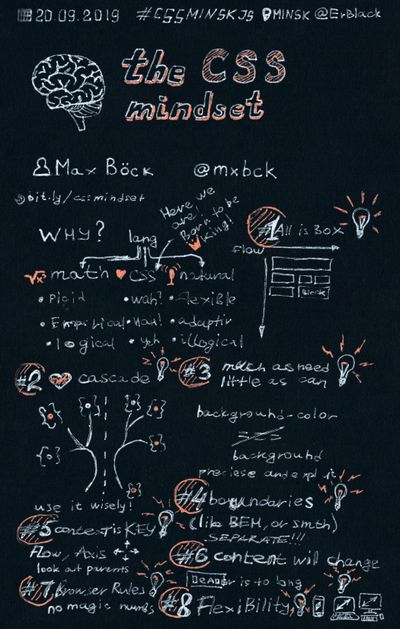 20.09.2019 #CSSMINSKJS MINSK @ErBlack
the CSS
mindset
Max Böck @mxbck
bit.ly/cssmindset
Here we
are
Born to be
King!
WHY?
lang
math CSS natural
Rigid
Empirical
logical
wah!
yeh
Flexible
adaptiv
illogical
#1 All is Box
Flow
Block
#2 cascade
{} {} {} {} {} {}
use it wisely!
#3 much as need
little as can
background-color
background
precise and expl it
#4 boundaries
(like BEM, or smth)
SEPARATE!!!
#5 context is KEY
Flow, Axis
look out parents
#6 content will change
is to long
#7 Browser Rules
no magic numbs
#8 FlexiBility